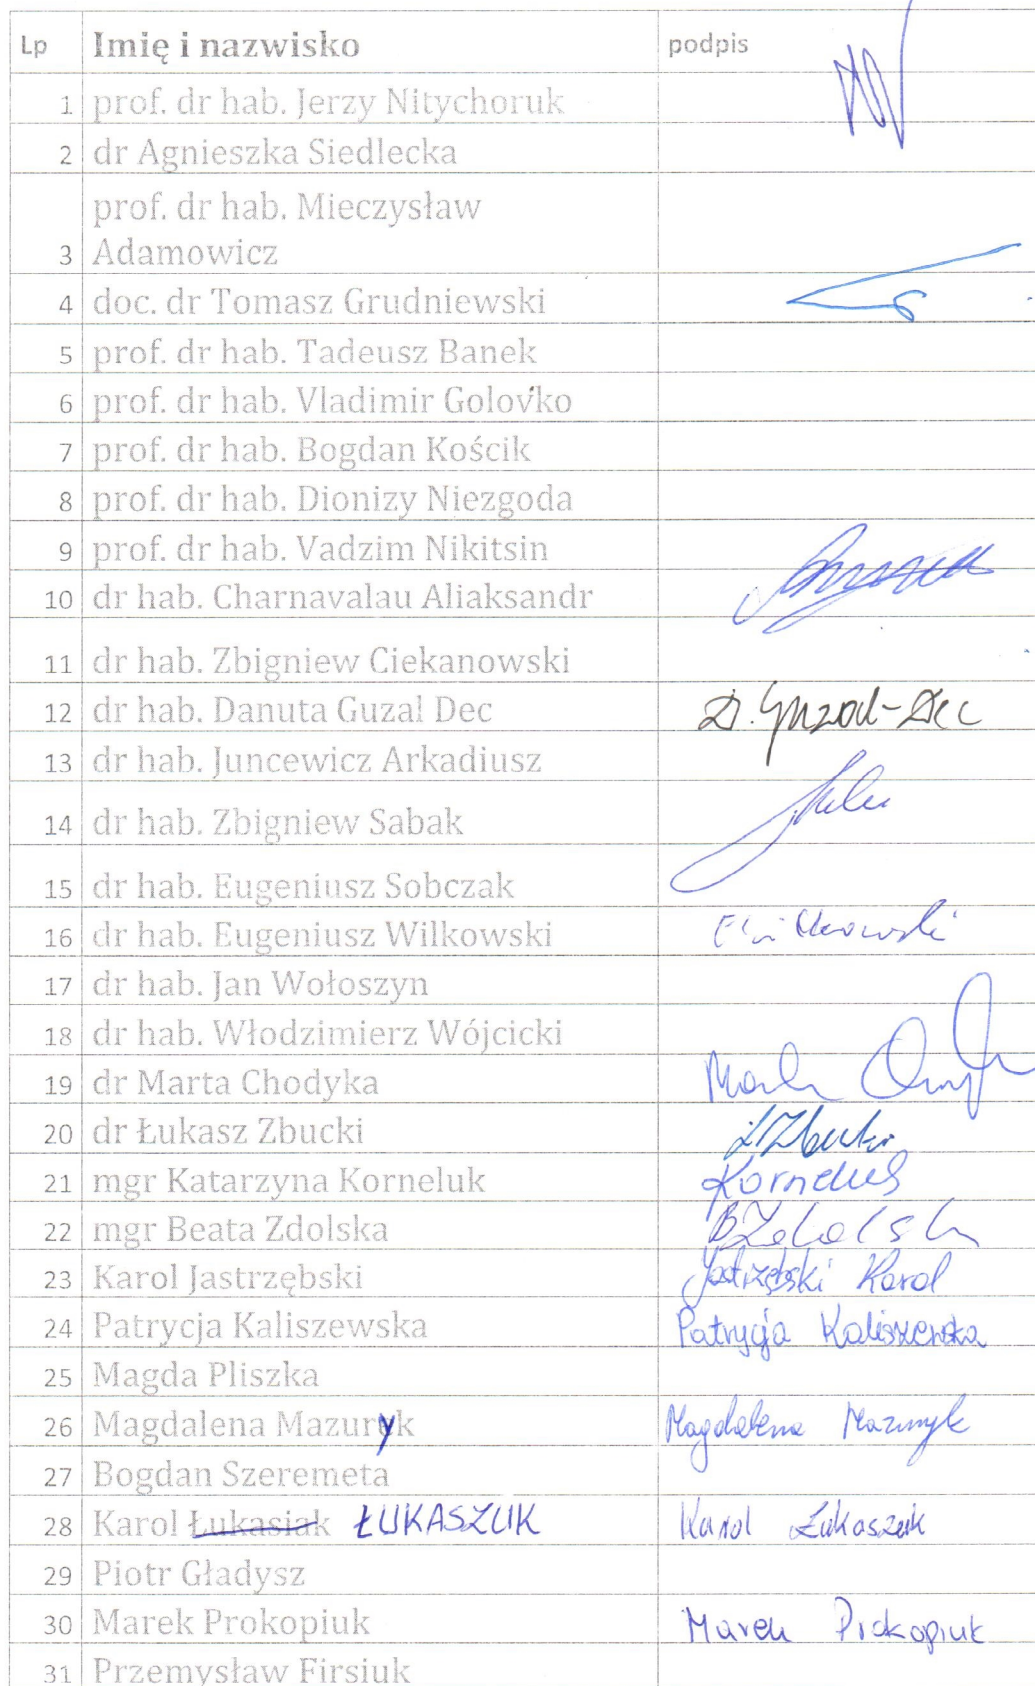 Lp Imię i nazwisko podpis
1 prof. dr hab. Jerzy Nitychoruk
2 dr Agnieszka Siedlecka
prof. dr hab. Mieczysław
3 Adamowicz
4 doc. dr Tomasz Grudniewski
5 prof. dr hab. Tadeusz Banek
6 prof. dr hab. Vladimir Golovko
7 prof. dr hab. Bogdan Kościk
8 prof. dr hab. Dionizy Niezgoda
9 prof. dr hab. Vadzim Nikitsin
10 dr hab. Charnavalau Aliaksandr
11 dr hab. Zbigniew Ciekanowski
12 dr hab. Danuta Guzal Dec D. Guzal-Dec
13 dr hab. Juncewicz Arkadiusz
14 dr hab. Zbigniew Sabak
15 dr hab. Eugeniusz Sobczak
16 dr hab. Eugeniusz Wilkowski
17 dr hab. Jan Wołoszyn
18 dr hab. Włodzimierz Wójcicki
19 dr Marta Chodyka
20 dr Łukasz Zbucki Ł Zbucki
21 mgr Katarzyna Korneluk Korneluk
22 mgr Beata Zdolska
23 Karol Jastrzębski Jastrzębski Karol
24 Patrycja Kaliszewska Patrycja Kaliszewska
25 Magda Pliszka
26 Magdalena Mazuryk Magdalena Mazuryk
27 Bogdan Szeremeta
28 Karol Łukasiak ŁUKASZUK Karol Łukaszuk
29 Piotr Gładysz
30 Marek Prokopiuk Marek Prokopiuk
31 Przemysław Firsiuk